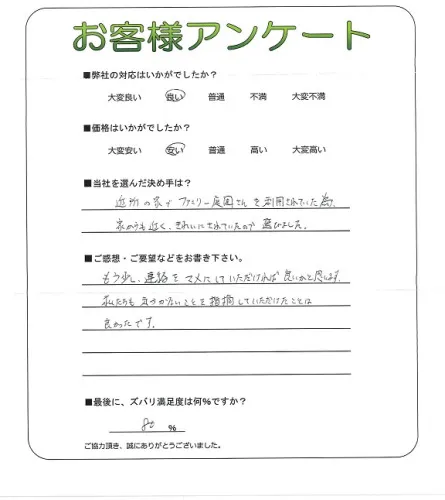 お客様アンケート
■弊社の対応はいかがでしたか？
大変良い 良い 普通 不満 大変不満
■価格はいかがでしたか？
大変安い 安い 普通 高い 大変高い
■当社を選んだ決め手は？
近所の家がファミリー庭園さんを利用されていた為、
家からも近く、きれいにされていたので選びました。
■ご感想・ご要望などをお書き下さい。
もう少し、連絡をマメにしていただければ良いかと思います。
私たちも気づかないことを指摘していただけたことは
良かったです。
■最後に、ズバリ満足度は何％ですか？
80 ％
ご協力頂き、誠にありがとうございました。